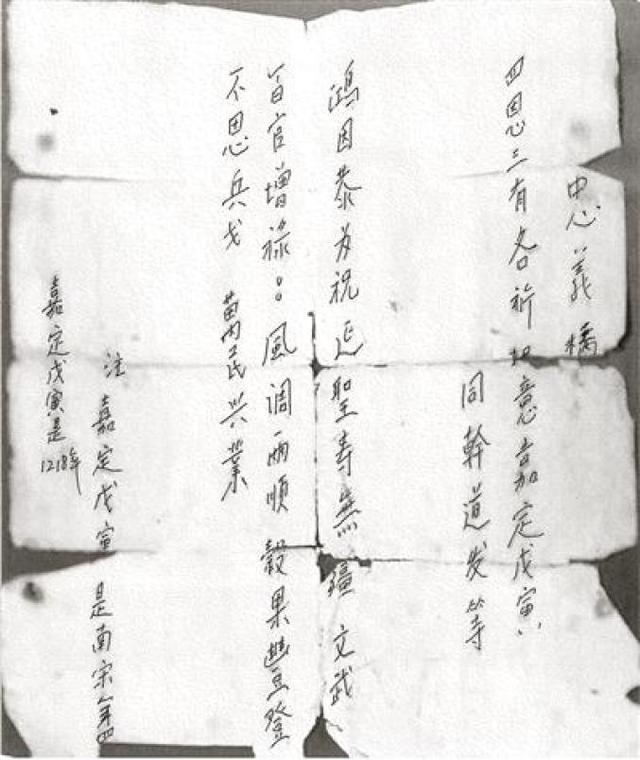 中心義橋
四恩三有各祈如意嘉定戊寅八
同幹道发等
鴻因恭为祝延聖寿無疆文武
百官增禄：風调雨順穀果豐登
不思兵戈 萬民兴業
注 嘉定戊寅是南宋年四
嘉定戊寅是1218年